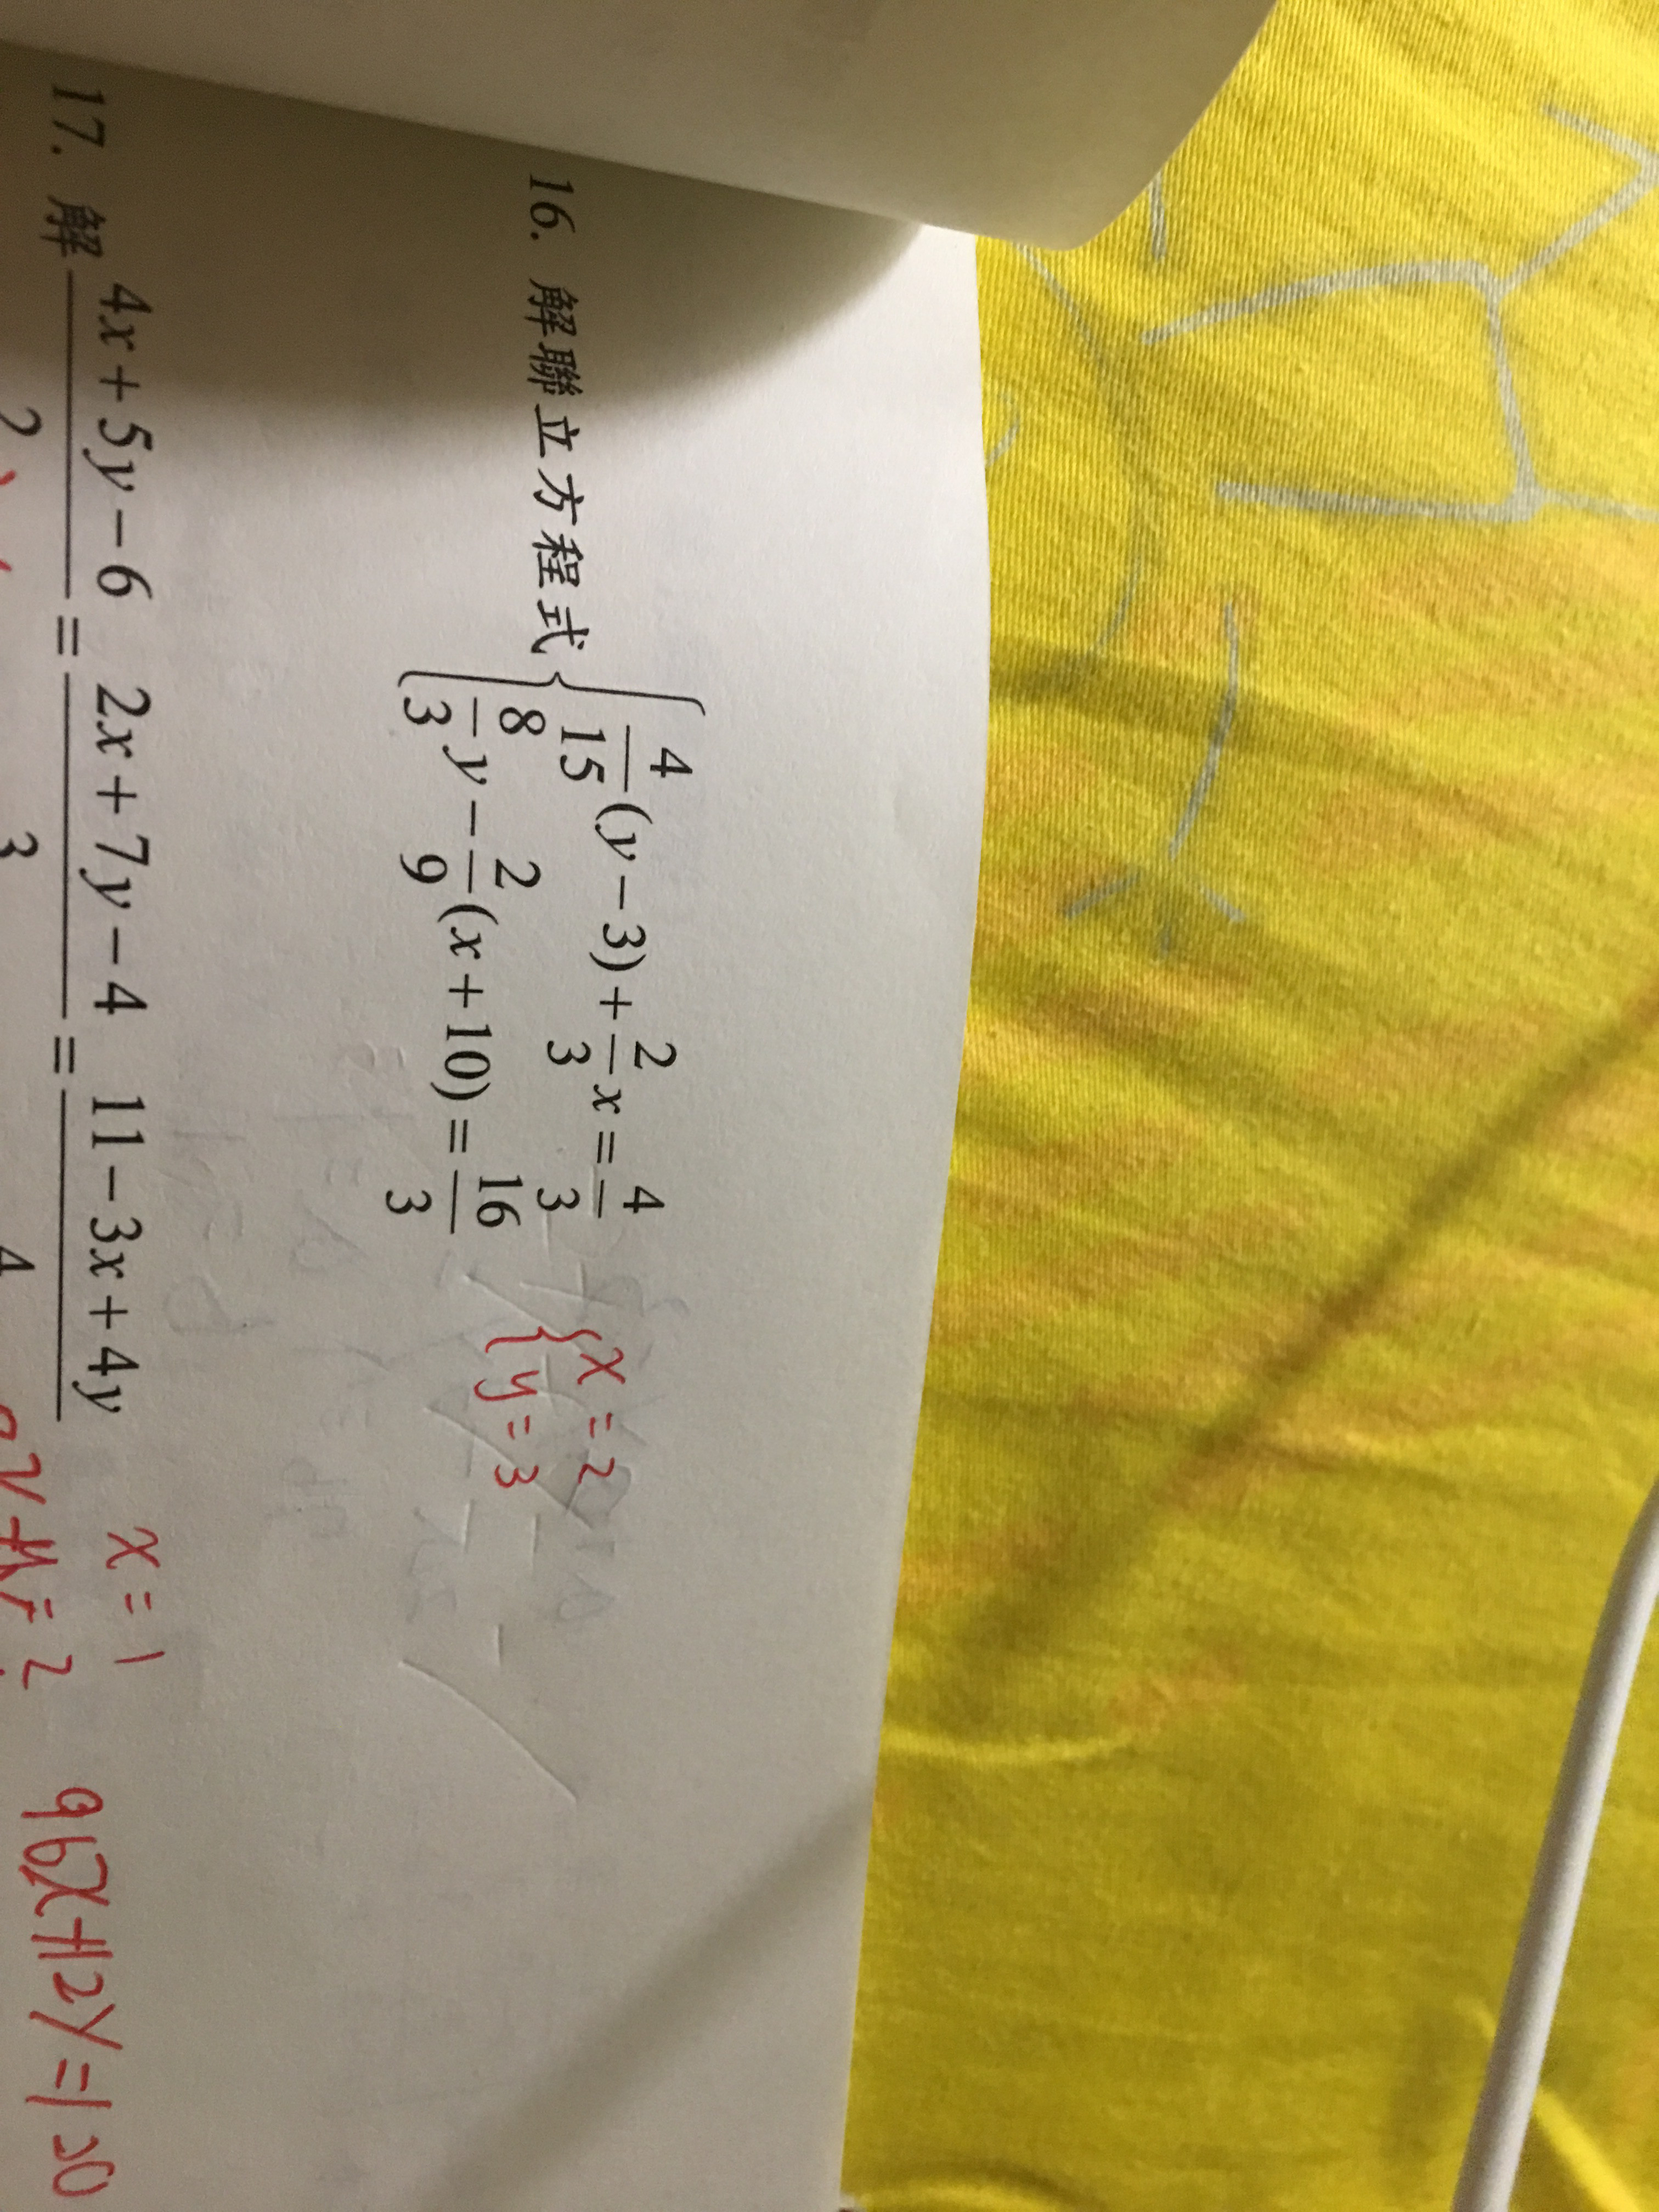 16. 解聯立方程式 { 4/15(y−3)+2/3x=4/3
8/3y−2/9(x+10)=16/3
{ x=2
y=3
17. 解 (4x+5y−6)/2=(2x+7y−4)/3=(11−3x+4y)/4
x=1
96x+12y=150